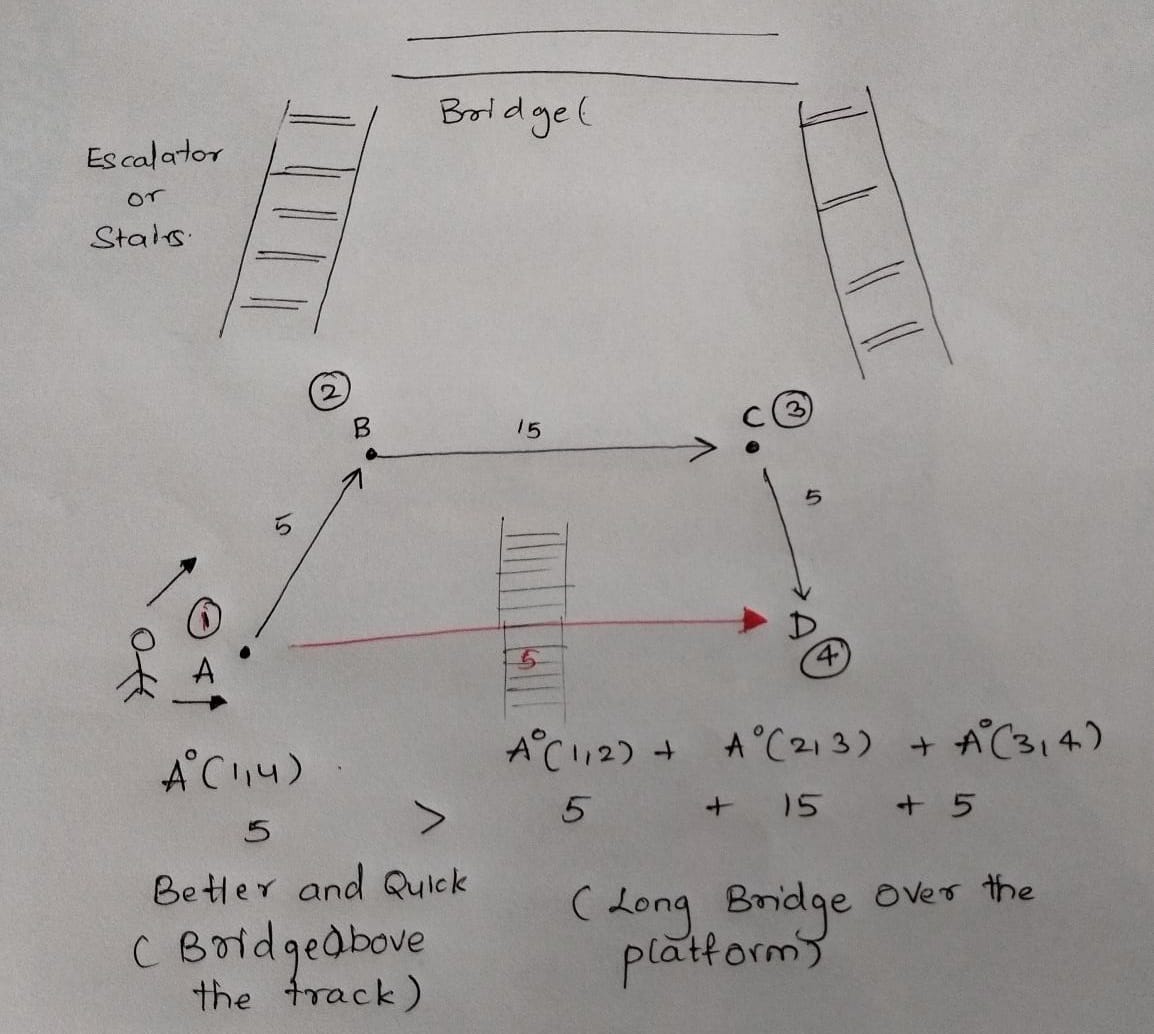 Bridge(
Escalator
or
Stairs.
2
B
15
C 3
5
5
1
A
D
5
4
A°(1,4)
A°(1,2) + A°(2,3) + A°(3,4)
5 > 5 + 15 + 5
Better and Quick
(Bridge above
the track)
(Long Bridge over the
platform)